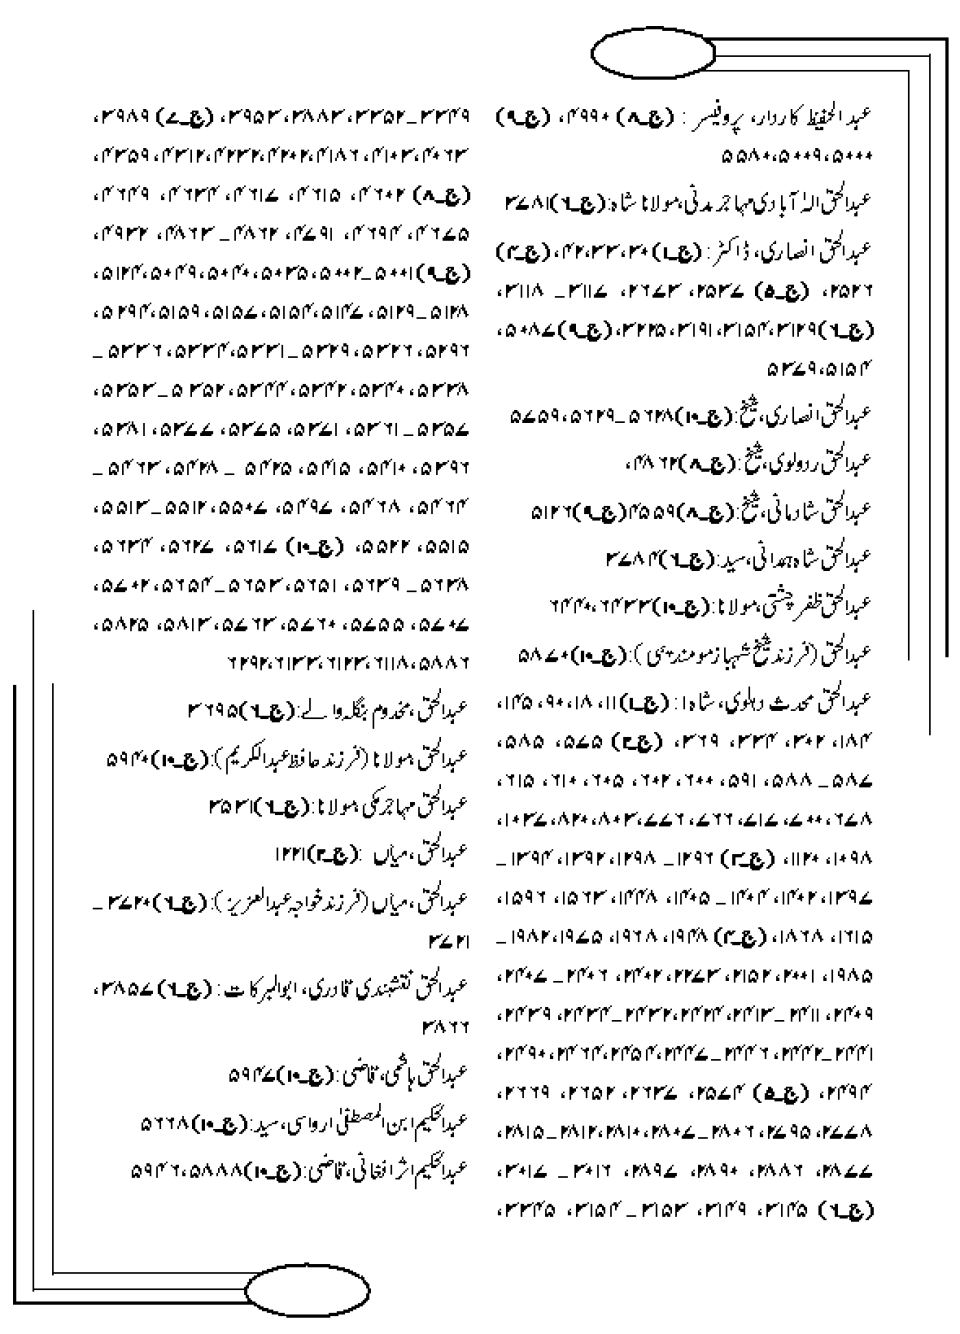 عبدالحفیظ کاردار، پروفیسر : (ج۔۸) ۴۹۹۰، (ج۔۹)
۵۰۰۰، ۵۰۰۹، ۵۵۸۰
عبدالحق الٰہ آبادی مہاجر مدنی، مولانا شاہ: (ج۔۶) ۳۷۸۱
عبدالحق انصاری، ڈاکٹر : (ج۔۱) ۳۰، ۳۳، ۴۲، (ج۔۴)
۲۵۲۶، (ج۔۵) ۲۵۳۷، ۲۶۷۳، ۳۱۱۷۔ ۳۱۱۸،
(ج۔۶) ۳۱۲۹، ۳۱۵۴، ۳۱۹۱، ۳۲۲۵، (ج۔۹) ۵۰۸۷،
۵۱۵۴، ۵۳۷۹
عبدالحق انصاری، شیخ: (ج۔۱۰) ۵۶۲۸۔۵۶۲۹، ۵۷۵۹
عبدالحق ردولوی، شیخ: (ج۔۸) ۴۸۶۲،
عبدالحق شادمانی، شیخ: (ج۔۸) ۴۵۵۹ (ج۔۹) ۵۱۲۶
عبدالحق شاہ ہمدانی، سید: (ج۔۶) ۳۷۸۴
عبدالحق ظفر چشتی، مولانا: (ج۔۱۰) ۶۴۳۳، ۶۴۴۰
عبدالحق (فرزند شیخ شہباز مومند): (ج۔۱۰) ۵۸۷۰
عبدالحق محدث دہلوی، شاہ: (ج۔۱) ۱۱، ۱۸، ۹۰، ۱۴۵،
۱۸۴، ۳۰۲، ۳۳۴، ۳۶۹، (ج۔۲) ۵۷۵، ۵۸۵،
۵۸۷۔ ۵۸۸، ۵۹۱، ۶۰۰، ۶۰۲، ۶۰۵، ۶۱۰، ۶۱۵،
۶۷۸، ۷۰۰، ۷۱۷، ۷۶۶، ۷۷۶، ۸۰۳، ۸۲۰، ۱۰۳۷،
۱۰۹۸، ۱۱۲۰، (ج۔۳) ۱۲۹۶۔ ۱۲۹۸، ۱۳۹۲، ۱۳۹۴۔
۱۳۹۷، ۱۴۰۲، ۱۴۰۴۔ ۱۴۰۵، ۱۴۴۸، ۱۵۶۳، ۱۵۹۶،
۱۶۱۵، ۱۸۶۸، (ج۔۴) ۱۹۴۸، ۱۹۶۸، ۱۹۷۵، ۱۹۸۲۔
۱۹۸۵، ۲۰۰۱، ۲۱۵۲، ۲۲۷۳، ۲۴۰۲، ۲۴۰۶۔ ۲۴۰۷،
۲۴۰۹، ۲۴۱۱ ۔۲۴۱۳، ۲۴۲۴، ۲۴۳۲۔۲۴۳۴، ۲۴۳۹،
۲۴۴۱۔۲۴۴۲، ۲۴۴۶ ۔۲۴۴۷، ۲۴۵۴، ۲۴۶۴، ۲۴۹۰،
۲۴۹۴، (ج۔۵) ۲۵۷۴، ۲۶۳۷، ۲۶۵۲، ۲۶۶۹،
۲۷۷۸، ۲۷۹۵، ۲۸۰۶۔۲۸۰۷، ۲۸۱۰، ۲۸۱۲۔۲۸۱۵،
۲۸۷۷، ۲۸۸۶، ۲۸۹۰، ۲۸۹۷، ۳۰۱۶۔ ۳۰۱۷،
(ج۔۶) ۳۱۴۵، ۳۱۴۹، ۳۱۵۳۔ ۳۱۵۴، ۳۳۴۵،
۳۳۴۹۔ ۳۳۵۲، ۳۸۸۳، ۳۹۵۳، (ج۔۷) ۳۹۸۹،
۴۰۶۳، ۴۱۰۳، ۴۱۸۶، ۴۲۰۲، ۴۲۳۲، ۴۳۱۲، ۴۳۵۹،
(ج۔۸) ۴۶۰۲، ۴۶۱۵، ۴۶۱۷، ۴۶۳۴، ۴۶۴۹،
۴۶۷۵، ۴۶۹۴، ۴۷۹۱، ۴۸۶۲۔ ۴۸۶۳، ۴۹۳۲،
(ج۔۹) ۵۰۰۱۔۵۰۰۲، ۵۰۳۵، ۵۰۴۰، ۵۰۴۹، ۵۱۲۴،
۵۱۲۸۔ ۵۱۲۹، ۵۱۴۷، ۵۱۵۴، ۵۱۵۷، ۵۱۵۹، ۵۲۹۴،
۵۲۹۶، ۵۳۲۶، ۵۳۲۹۔ ۵۳۳۱، ۵۳۳۴، ۵۳۳۶ ۔
۵۳۳۸، ۵۳۴۰، ۵۳۴۲، ۵۳۴۴، ۵۳۵۲ ۔ ۵۳۵۳،
۵۳۵۷۔ ۵۳۶۱، ۵۳۷۱، ۵۳۷۵، ۵۳۷۷، ۵۳۸۱،
۵۳۹۶، ۵۴۱۰، ۵۴۱۵، ۵۴۲۵ ۔ ۵۴۲۸، ۵۴۶۳ ۔
۵۴۶۴، ۵۴۶۸، ۵۴۹۷، ۵۵۰۷، ۵۵۱۲۔ ۵۵۱۳،
۵۵۱۵، ۵۵۲۲، (ج۔۱۰) ۵۶۱۷، ۵۶۲۷، ۵۶۳۴،
۵۶۳۸۔ ۵۶۳۹، ۵۶۵۱، ۵۶۵۳۔ ۵۶۵۴، ۵۷۰۲،
۵۷۰۷، ۵۷۵۵، ۵۷۶۰، ۵۷۶۳، ۵۸۱۳، ۵۸۲۵،
۵۸۸۶، ۶۱۱۸، ۶۱۲۳، ۶۱۳۳، ۶۲۹۲
عبدالحق، مخدوم بنگلہ والے: (ج۔۶) ۳۶۹۵
عبدالحق، مولانا (فرزند حافظ عبدالکریم): (ج۔۱۰) ۵۹۴۰
عبدالحق مہاجر مکی، مولانا: (ج۔۶) ۳۵۳۱
عبدالحق، میاں : (ج۔۲) ۱۲۲۱
عبدالحق، میاں (فرزند خواجہ عبدالعزیز): (ج۔۶) ۳۷۲۰ ۔
۳۷۲۱
عبدالحق نقشبندی قادری، ابوالبرکات : (ج۔۶) ۳۸۵۷،
۳۸۶۶
عبدالحق ہاشمی، قاضی: (ج۔۱۰) ۵۹۴۷
عبدالحکیم ابن المصطفیٰ ارواسی، سید: (ج۔۱۰) ۵۶۶۸
عبدالحکیم اثر افغانی، قاضی: (ج۔۱۰) ۵۸۸۸، ۵۹۴۶